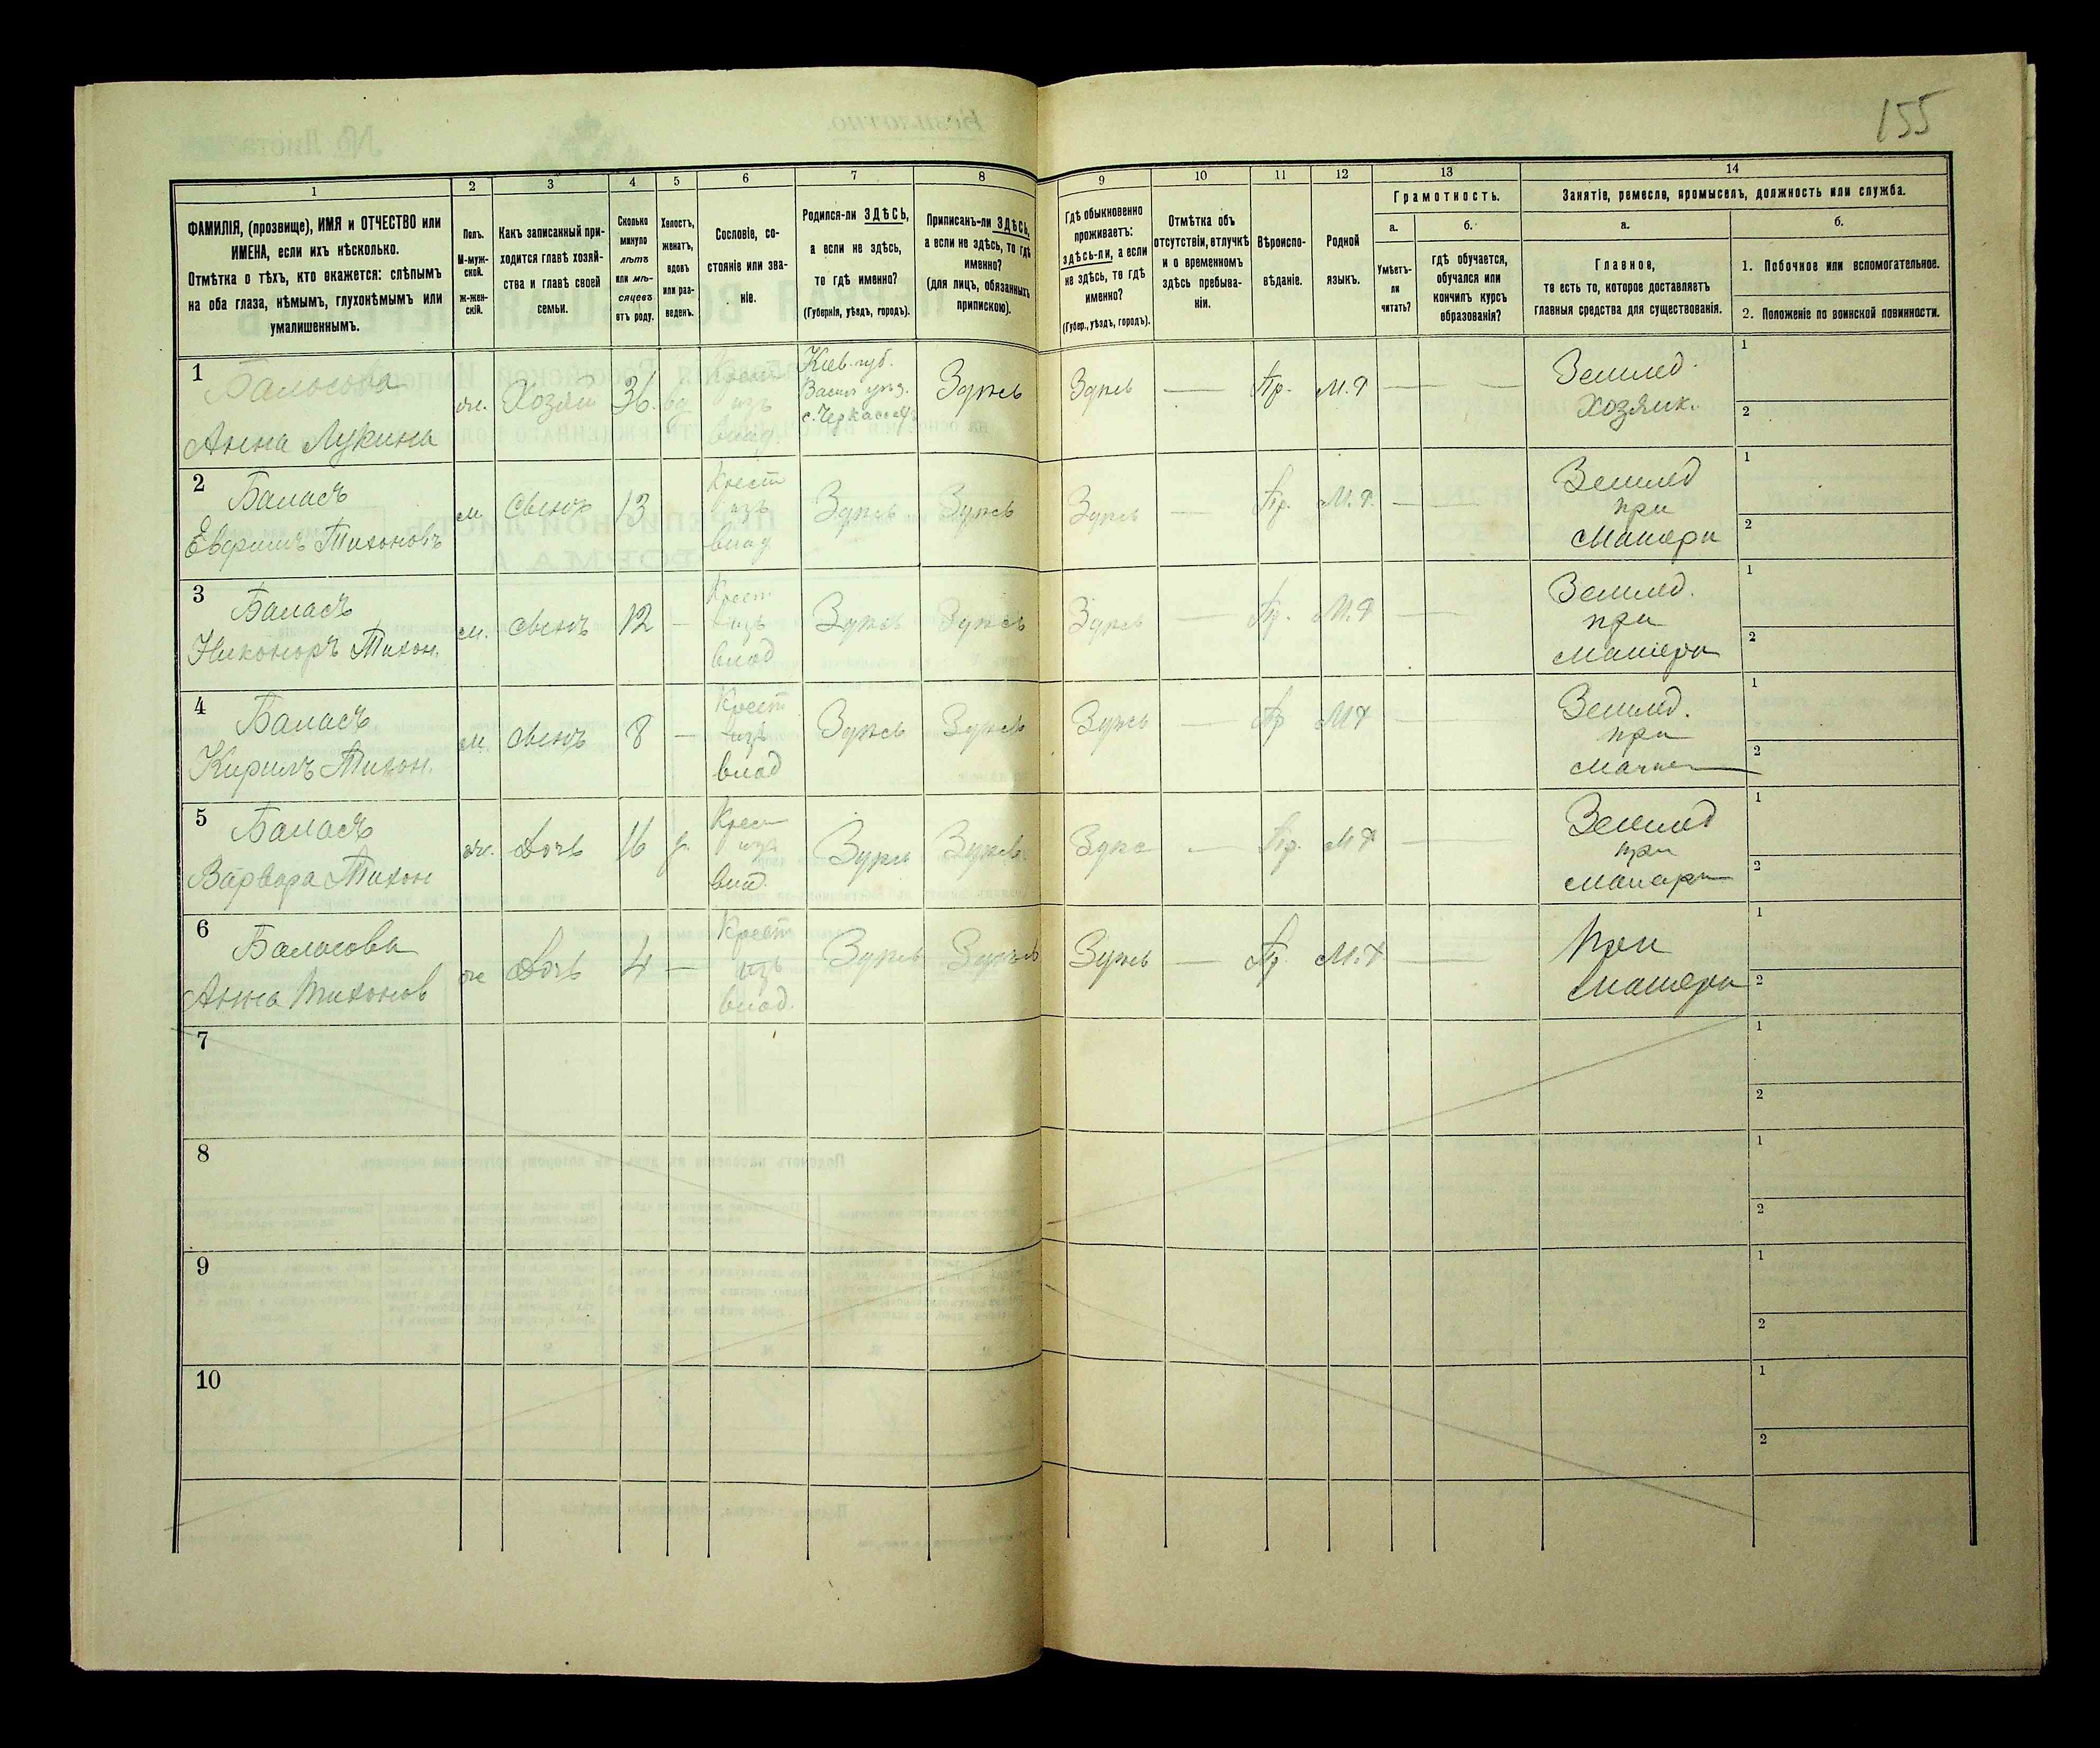 155
1
2
3
4
5
6
7
8
9
10
11
12
13
14
ФАМИЛІЯ, (прозвище), ИМЯ и ОТЧЕСТВО или
ИМЕНА, если ихъ нѣсколько.
Отмѣтка о тѣхъ, кто окажется: слѣпымъ
на оба глаза, нѣмымъ, глухонѣмымъ или
умалишеннымъ.
Полъ.
М-муж-
ской.
ж-жен-
скій.
Какъ записанный при-
ходится главѣ хозяй-
ства и главѣ своей
семьи.
Сколько
минуло
лѣтъ
или мѣ-
сяцевъ
отъ роду.
Холостъ,
женатъ,
вдовъ
или раз-
веденъ.
Сословіе, со-
стояніе или зва-
ніе.
Родился-ли ЗДѢСЬ,
а если не здѣсь,
то гдѣ именно?
(Губернія, уѣздъ, городъ).
Приписанъ-ли ЗДѢСЬ,
а если не здѣсь, то гдѣ
именно?
(для лицъ, обязанныхъ
припискою).
Гдѣ обыкновенно
проживаетъ:
здѣсь-ли, а если
не здѣсь, то гдѣ
именно?
(Губер., уѣздъ, городъ).
Отмѣтка объ
отсутствіи, отлучкѣ
и о временномъ
здѣсь пребыва-
ніи.
Вѣроиспо-
вѣданіе.
Родной
языкъ.
Грамотность.
а.
Умѣетъ-
ли
читать?
б.
гдѣ обучается,
обучался или
кончилъ курсъ
образованія?
Занятіе, ремесло, промыселъ, должность или служба.
а.
Главное,
то есть то, которое доставляетъ
главныя средства для существованія.
б.
1. Побочное или вспомогательное.
2. Положеніе по воинской повинности.
1
Баласова
Анна Лукина
ж. Хозяй 36. вд
Крест
изъ
влад.
Кіев. губ.
Васил уѣз.
с. Черкассы
Здѣсь Здѣсь — Пр. М.Р — —
Землед.
хозяик.
1
2
2
Баласъ
Тихоновъ
м. Сынъ 13
Крест
изъ
влад
Здѣсь Здѣсь Здѣсь — Пр. М.Р. —
Землед
при
Матери
1
2
3
Баласъ
Никоноръ Тихон.
м. Сынъ 12 —
Крест
изъ
влад
Здѣсь Здѣсь Здѣсь — Пр. М.Р —
Землед.
при
матери
1
2
4
Баласъ
Кирилъ Тихон.
м Сынъ 8 —
Крест
изъ
влад
Здѣсь Здѣсь Здѣсь — Пр МР —
Землед.
при
1
2
5
Баласъ
Варвара Тихон
ж. Дочь 16 д.
Крест
изъ
влад.
Здѣсь Здѣсь — Пр. МР —
Землед
при
матери
1
2
6
Баласова
Анна Тихонов
ж Дочь 4 —
Крест
изъ
влад.
Здѣсь Здѣсь Здѣсь — Пр. М.Р —
При
матери
1
2
7
1
2
8
1
2
9
1
2
10
1
2